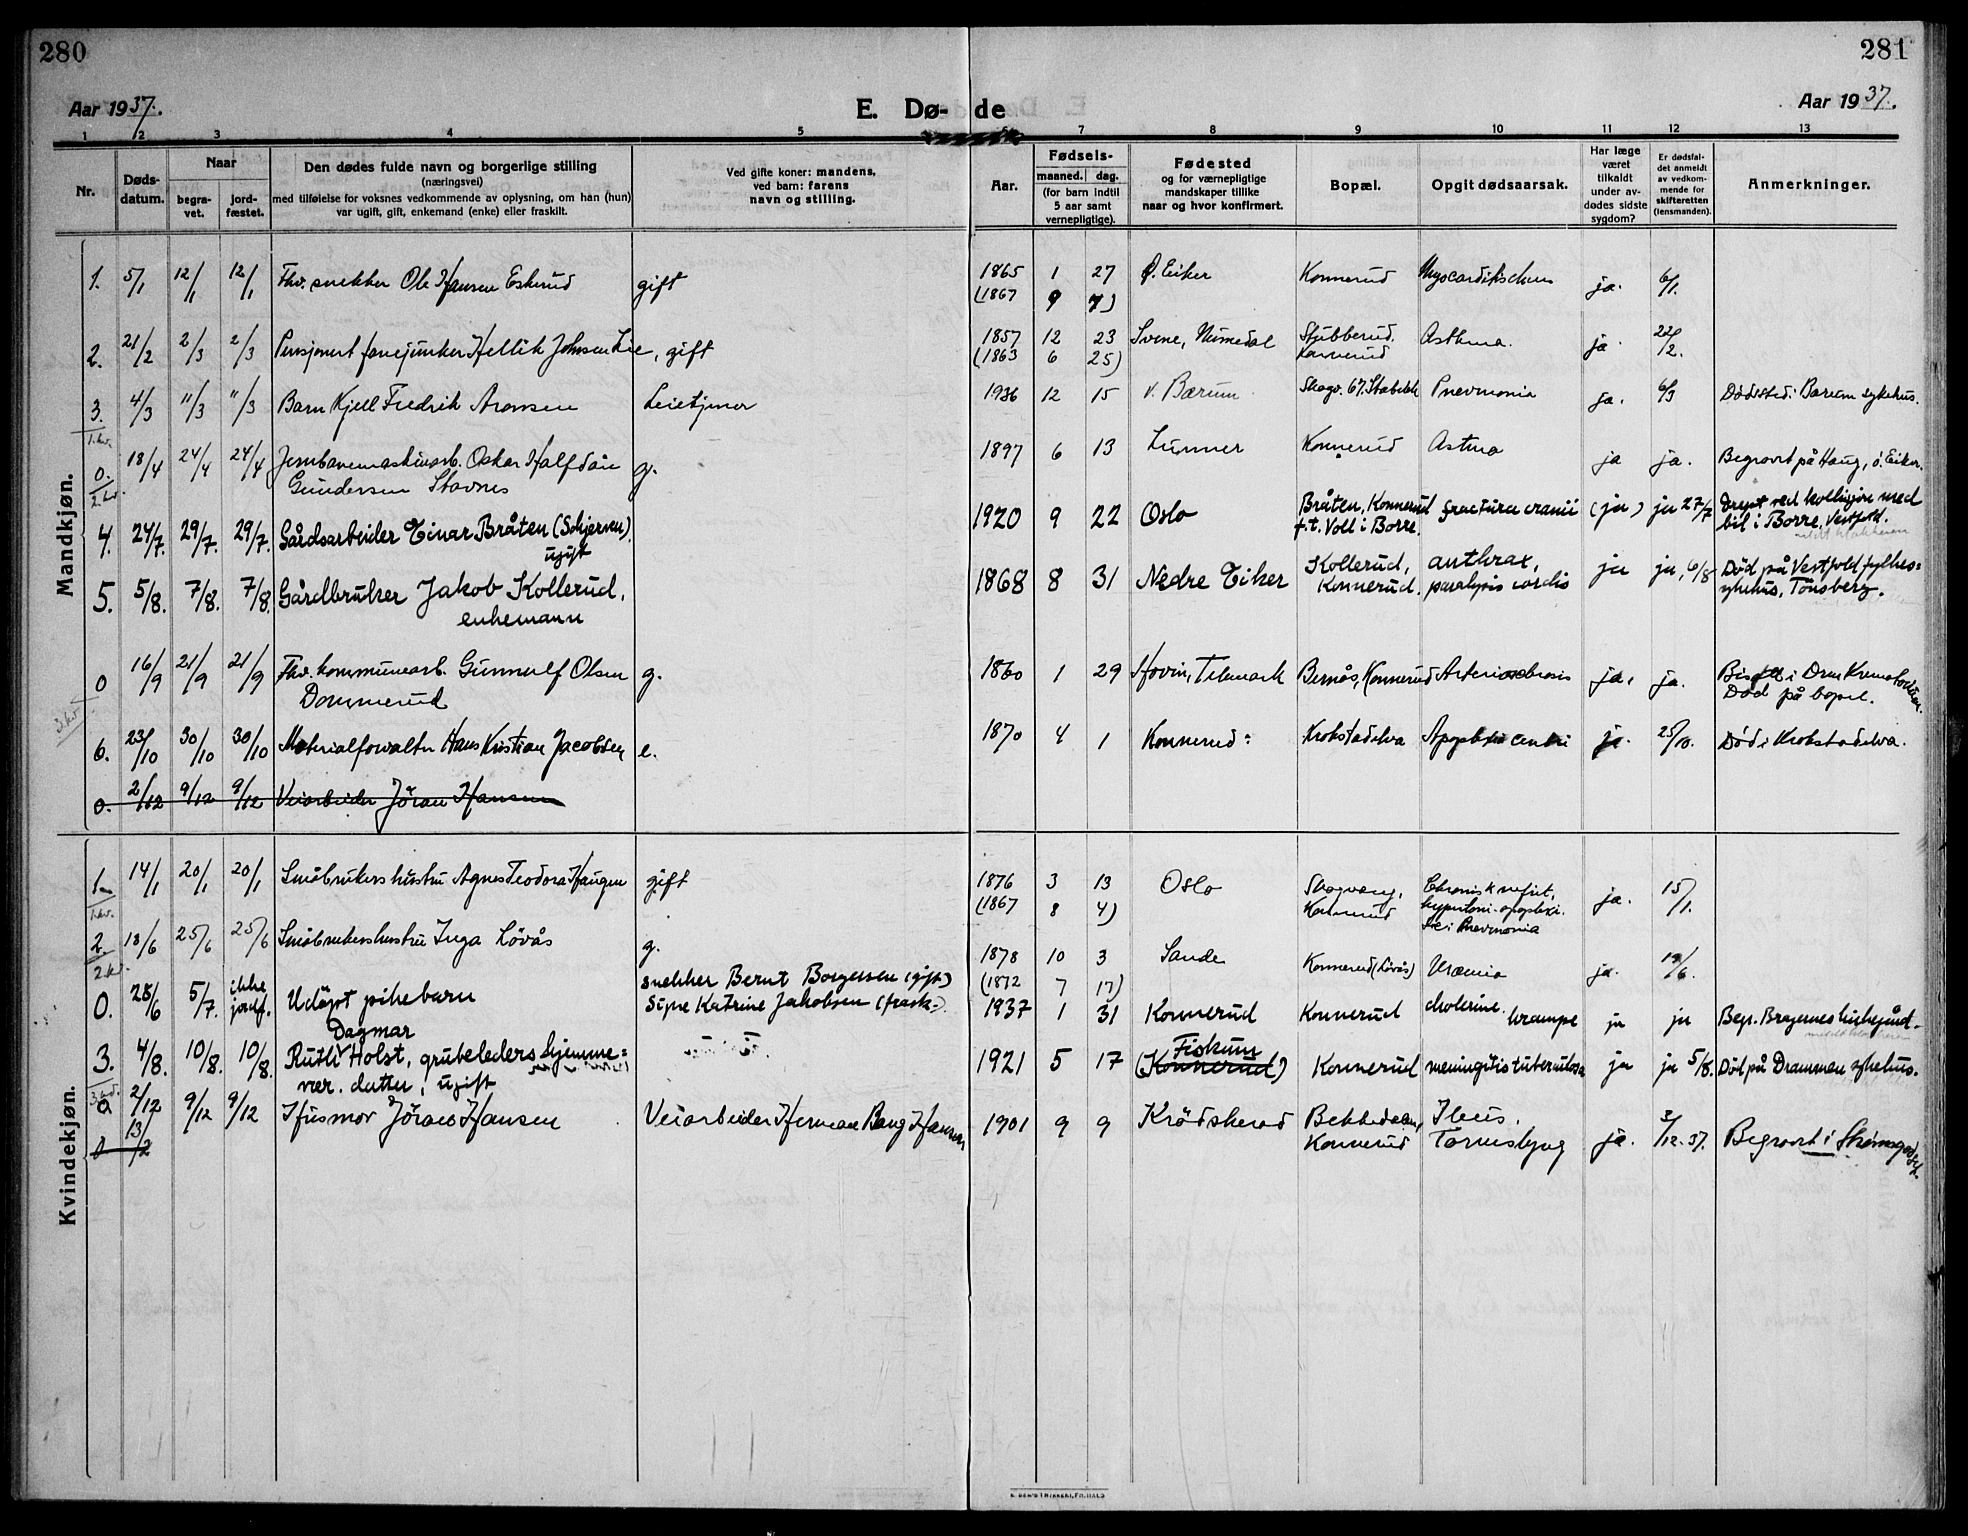 280
281
Aar 1937.
E. Dø-de
Aar 1937.
1 2 3 4 5 6 7 8 9 10 11 12 13
Nr.
Døds-
datum.
Naar
begra-
vet.
jord-
fæstet.
Den dødes fulde navn og borgerlige stilling
(næringsvei)
med tilføielse for voksnes vedkommende av oplysning, om han (hun)
var ugift, gift, enkemand (enke) eller fraskilt.
Ved gifte koner: mandens,
ved barn: farens
navn og stilling.
Aar.
Fødsels-
maaned. dag.
(for barn indtil
5 aar samt
vernepligtige).
Fødested
og for værnepligtige
mandskaper tillike
naar og hvor konfirmert.
Bopæl.
Opgit dødsaarsak.
Har læge
været
tilkaldt
under av-
dødes sidste
sygdom?
Er dødsfal-
det anmeldt
av vedkom-
mende for
skifteretten
(lensmanden).
Anmerkninger.
Mandkjøn.
1. 5/1 12/1 12/1 Fhv. snekker Ole Hansen Eskerud gift 1865 1 27 Ø. Eiker Konnerud ja. 6/1.
(1867 9 7)
2. 21/2 2/3 2/3 Pensjonert fanejunker Hellik Johnsen Lie, gift 1857 12 23 Svene, Numedal Stubberud, Asthma. ja. 22/2.
(1863 6 25) Konnerud
3. 4/3 11/3 11/3 Barn Kjell Fredrik Aronsen 1936 12 15 V. Bærum Skogv. 67, Stabekk Pnevmonia ja. 6/3 Dødssted: Bærum sykehus.
1.kv.
0. 18/4 24/4 24/4 Jernbanemaskinarb. Oskar Halfdan g. 1897 6 13 Lunner Konnerud Astma ja ja. Begravet på Haug, ø. Eiker.
2.kv. Gundersen Stavnes
4. 24/7. 29/7. 29/7. Gårdsarbeider Einar Bråten (Schjerven) 1920 9 22 Oslo Bråten, Konnerud fractura cranii (ja) ja 27/7 Drept ved kollisjon med
ugift f.t. Voll i Borre. bil i Borre, Vestfold.
5. 5/8. 7/8. 7/8. Gårdbruker Jakob Kollerud, 1868 8 31 Nedre Eiker Kollerud, anthrax, ja ja, 6/8 Død på Vestfold fylkes=
enkemann Konnerud. paralysis cordis sykehus, Tønsberg.
0 16/9 21/9 21/9 Fhv. kommunearb. Gunnulf Olsen g. 1860 1 29 Hovin, Telemark Bernås, Konnerud ja, ja. Bisatt i Dram. Krematorium.
3.kv Dommerud Død på bopel.
6. 23/10 30/10 30/10 Materialforvalter Hans Kristian Jacobsen e. 1870 4 1 Konnerud: Krokstadelva ja. 25/10. Død i Krokstadelva.
0. 2/12 9/12 9/12 Veiarbeider Jöran Hansen
Kvindekjøn.
1. 14/1 20/1 20/1 Småbrukers hustru Agnes Teodora Haugen gift 1876 3 13 Oslo Skogvang, Chronisk nefrit, ja. 15/1.
1.kv. (1867 8 4) Konnerud hypertoni-apoplexi.
Pnevmonia
2. 18/6 25/6 25/6 Småbrukershustru Inga Lövås g. 1878 10 3 Sande Konnerud (Lövås) Uræmia ja. 19/6.
2.kv. (1872 7 17)
0. 28/6 5/7. ikke jordf. Udöpt pikebarn snekker Bernt Borgersen (gift) 1937 1 31 Konnerud Konnerud cholerine. krampe ja ja Begr. Bragernes kirkegård.
Signe Katrine Jakobsen (frask.)
Dagmar
3. 4/8. 10/8. 10/8. Ruth Holst, grubeleders hjemme= 1921 5 17 (Konnerud) Fiskum Konnerud meningitis tuberculosa ja ja 5/8. Død på Drammen sykehus.
3.kv. vær. datter, ugift
0 2/12 9/12 9/12 Husmor Jöran Hansen Veiarbeider Herman Bang Hansen 1901 9 9 Krödsherad Bekkedalen, Ileus. ja. 3/12. 37. Begravet i Skoger
0 13/12 Konnerud Tarmslyng